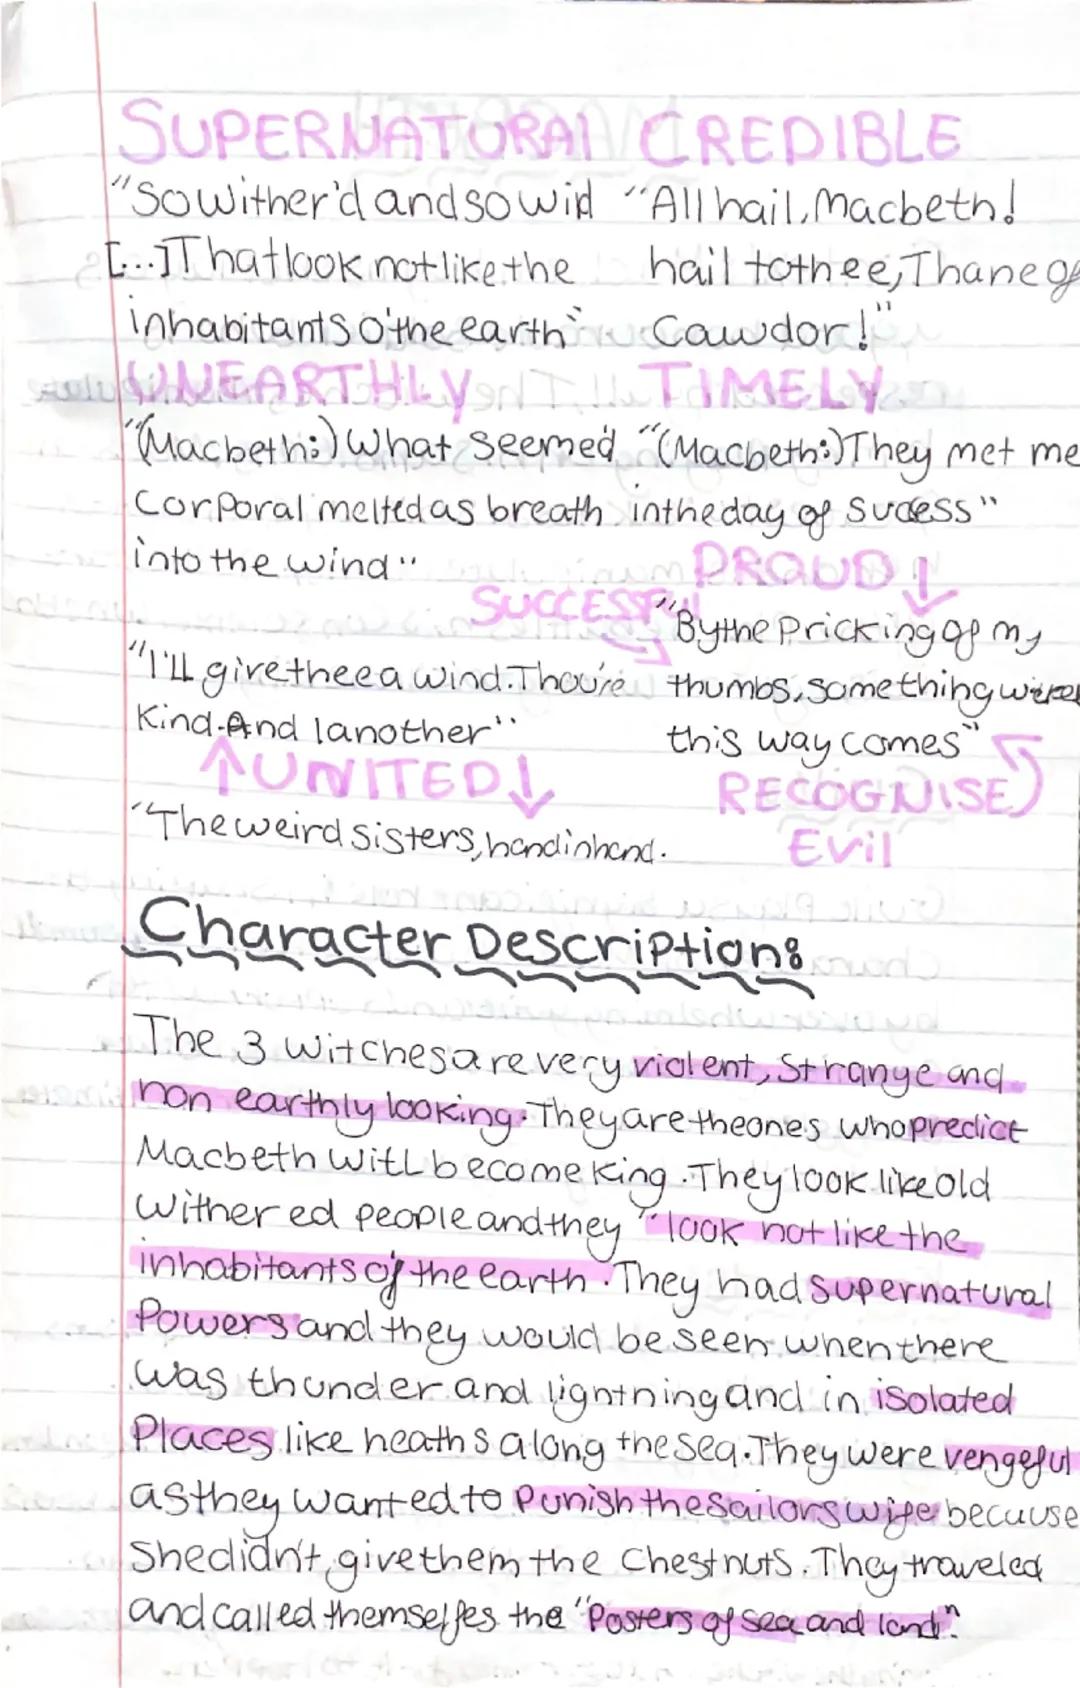 SUPERNATURAL CREDIBLE
"So wither'd and so wild "All hail, Macbeth!
[...] That look not like the hail to thee, Thane of
inhabitants o'the earth" Cawdor!"
UNEARTHLY TIMELY
"(Macbeth:) What seemed "(Macbeth:) They met me
Corporal melted as breath in the day of Sucess"
into the wind" PROUD ↓
SUCCESSFUL "By the Pricking of my
"I'll give thee a wind. Thou're thumbs, something
Kind. And I another" this way comes"
↑ UNITED ↓ RECOGNISE
"The weird sisters, hand in hand. Evil
Character Description:
The 3 Witches are very violent, Strange and
non earthly looking. They are the ones who predict
Macbeth will become King. They look like old
Withered people and they "look not like the
inhabitants of the earth. They had Supernatural
Powers and they would be seen when there
was thunder and lightning and in isolated
Places like heaths along the sea. They were vengeful
as they wanted to Punish the Sailors wife because
She didn't give them the Chestnuts. They traveled
and called themselfes the "Posters of sea and land".